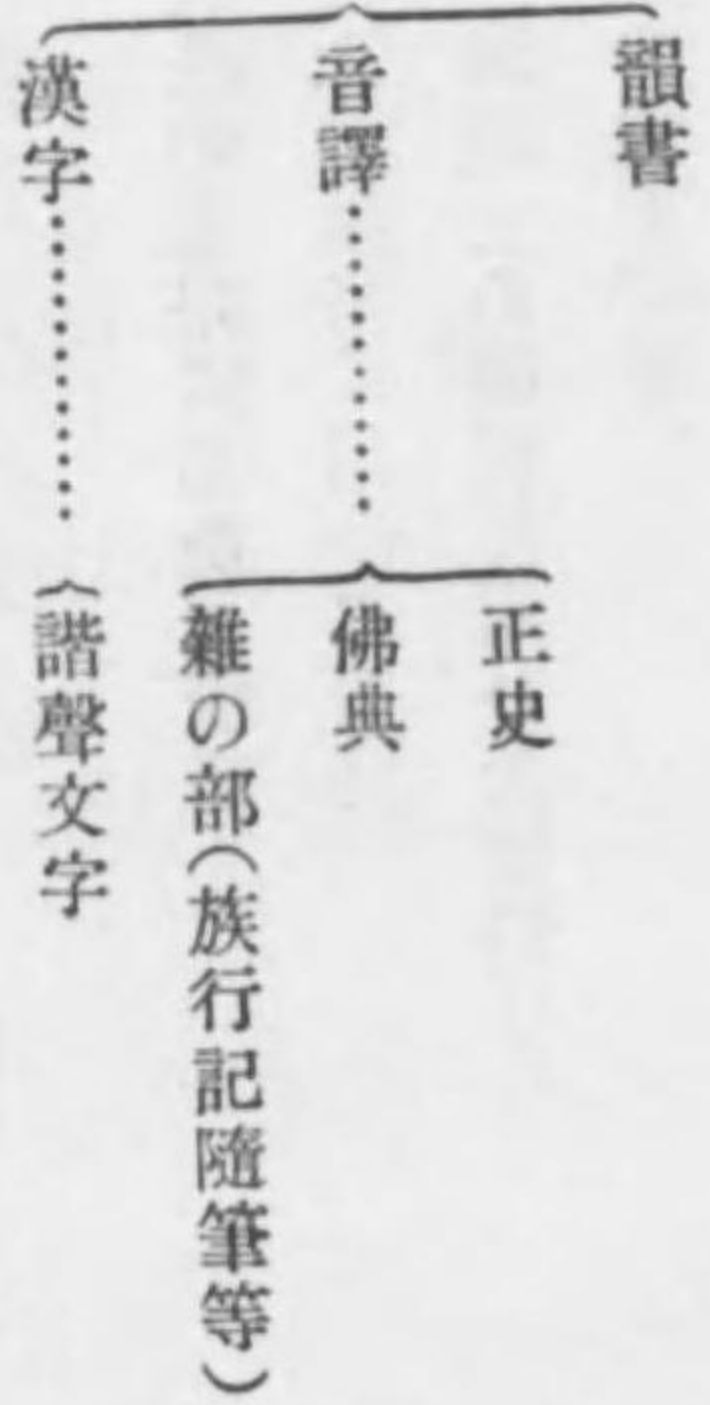 韻書
音譯………
正史
佛典
雜の部(族行記隨筆等)
漢字…………
諧聲文字